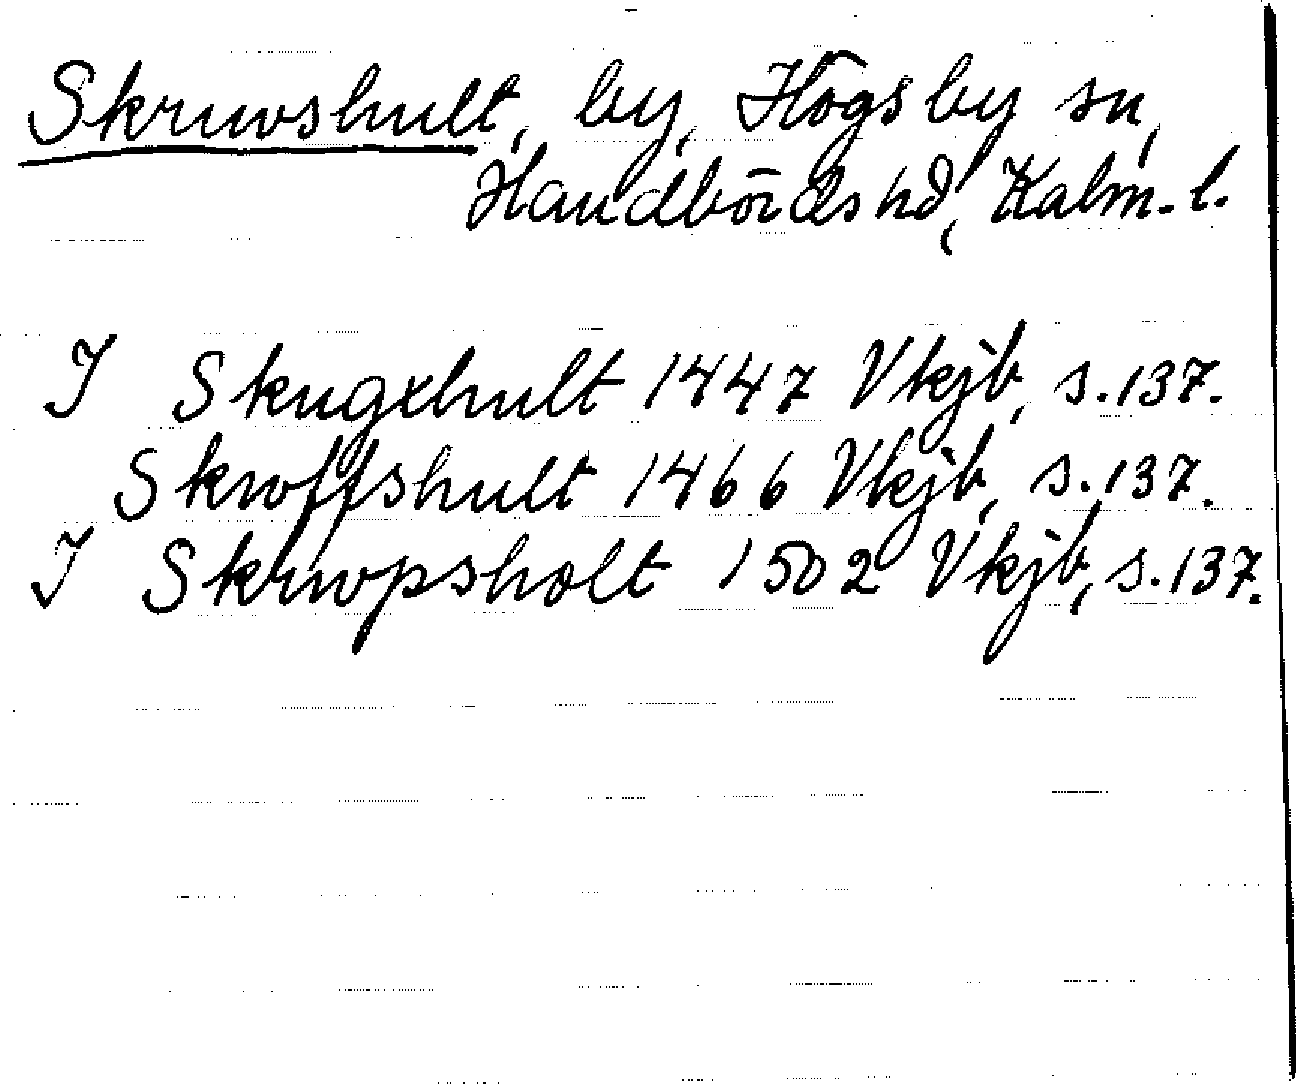 Skruvshult, by, Högsby sn,
Handbörds hd, Kalm. l.
I Skugxhult 1447 Vkjb, s. 137.
Skroffshult 1466 Vkjb, s. 137.
I Skruvpsholt 1502 Vkjb, s. 137.